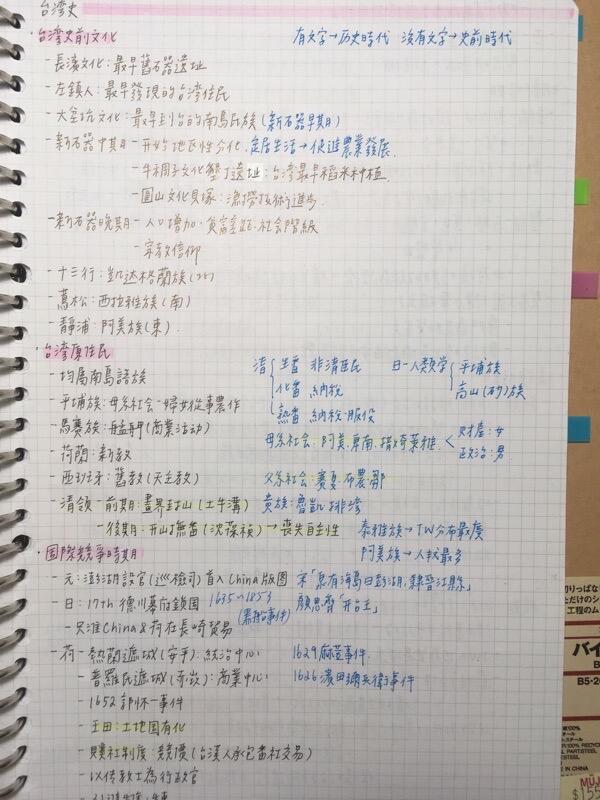 台湾史
台湾史前文化 有文字→历史時代 沒有文字→史前時代
-長濱文化:最早舊石器遺址
-左鎮人:最早發現的台湾住民
-大坌坑文化:最早到台的南島民族(新石器早期)
-新石器中期-开始地区性分化.定居生活→促進農業發展.
-牛稠子文化墾丁遺址:台湾最早稻米种植.
-圓山文化貝塚:漁撈技術進步.
-新石器晚期-人口增加.貧富差距.社会階級
-宗教信仰
-十三行:凱达格蘭族(北)
-蔦松:西拉雅族(南)
-靜浦:阿美族(東).
台湾原住民
清 生番 非清住民 日-人類学 平埔族
-均屬南島語族 化番 納稅 高山(砂)族
-平埔族:母系社会-婦女從事農作 熟番 納稅.服役
-馬賽族:艋舺(商業活动) 母系社会:阿美.卑南. 財產:女 政治:男
-荷蘭:新教
-西班牙:舊教(天主教) 父系社会:賽夏.布農.鄒
-清領-前期:畫界封山(土牛溝) 貴族:魯凱.排湾
-後期:开山撫番(沈葆禎)→喪失自主性 泰雅族→TW分布最廣
阿美族→人数最多
国際競爭時期
-元:澎湖設官(巡檢司)首入China版图 宋「泉有海島曰彭湖,隸晉江縣」
-日:17th 德川幕府鎖国 1635~1853 (黑船事件) 顏思齊「开台王」
-只准China&荷在長崎貿易
-荷-熱蘭遮城(安平):統治中心 1629麻荳事件.
-普羅民遮城(赤崁):商業中心 1626濱田彌兵衛事件
-1652郭怀一事件
-王田:土地国有化
-贌社制度:競價(台漢人承包番社交易)
-以传教士為行政官
バイ
B5・26
MADE IN CHINA
MUJI
$155